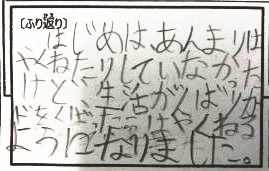 〔ふり返り〕
はじめは、あんまりは
やくねたりしていなかった
けど、生活がんばりカ
ドをくばったらはやくねる
ようになりました。